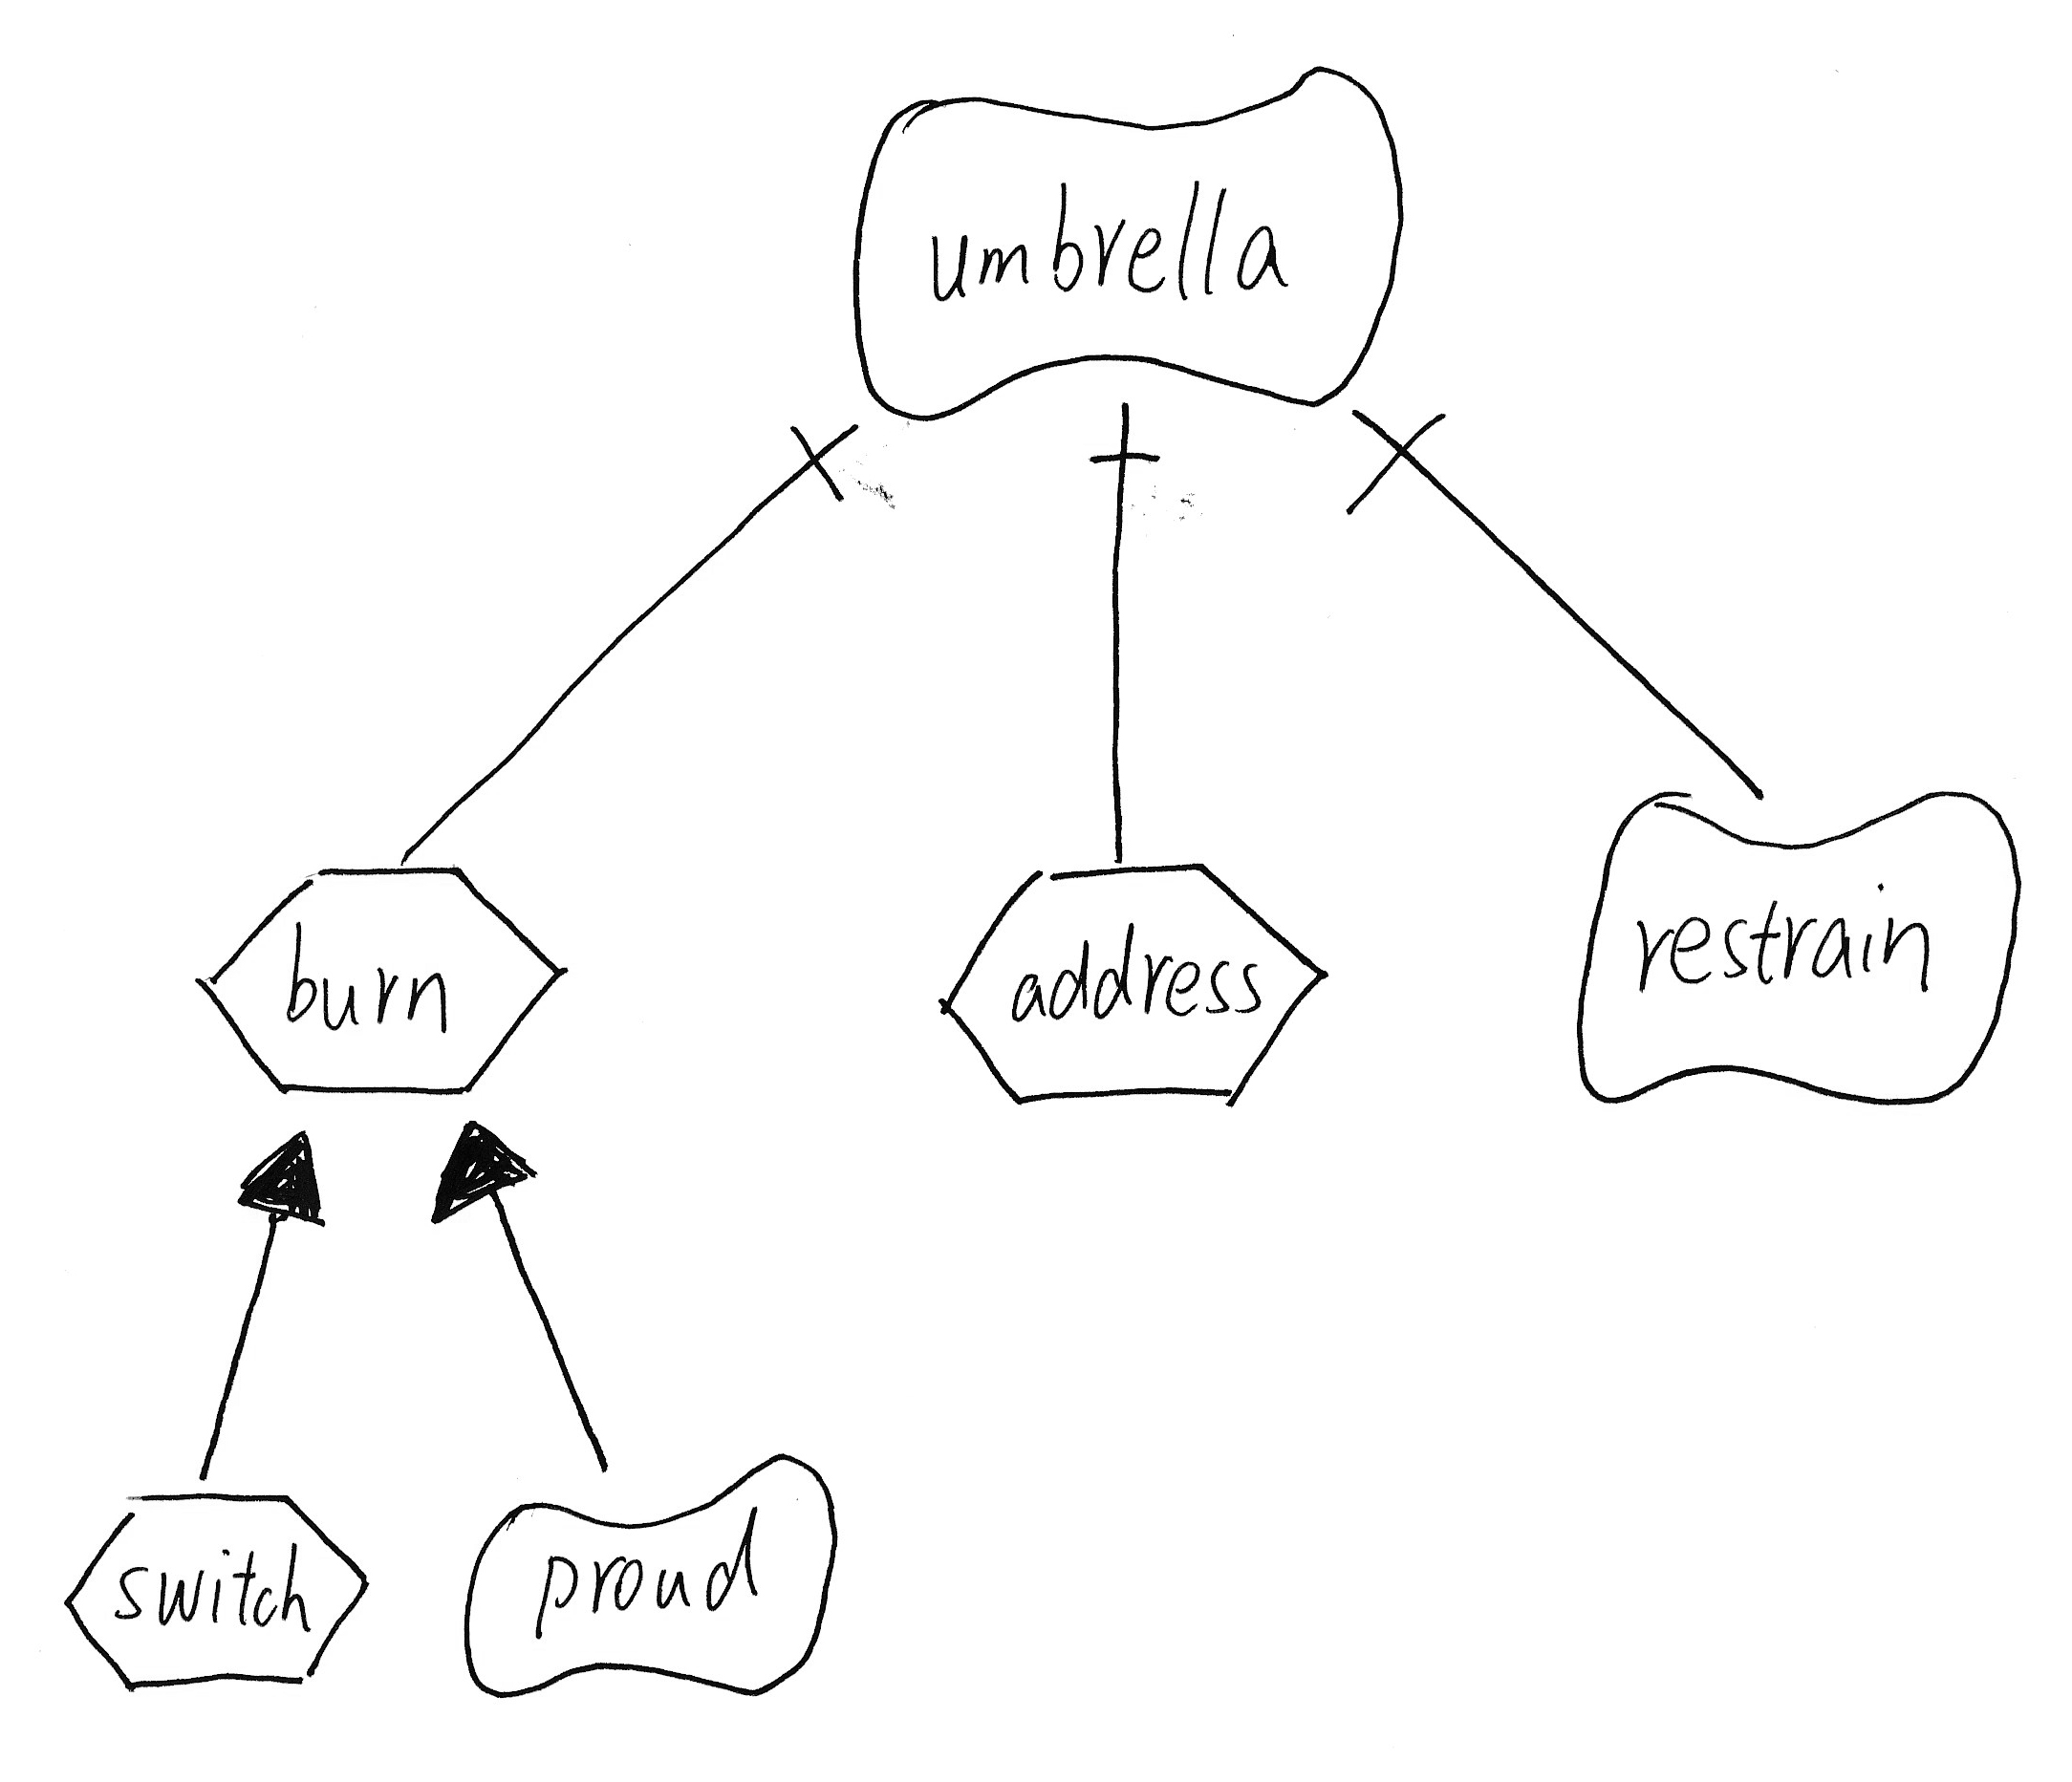 umbrella
burn
address
restrain
switch
proud